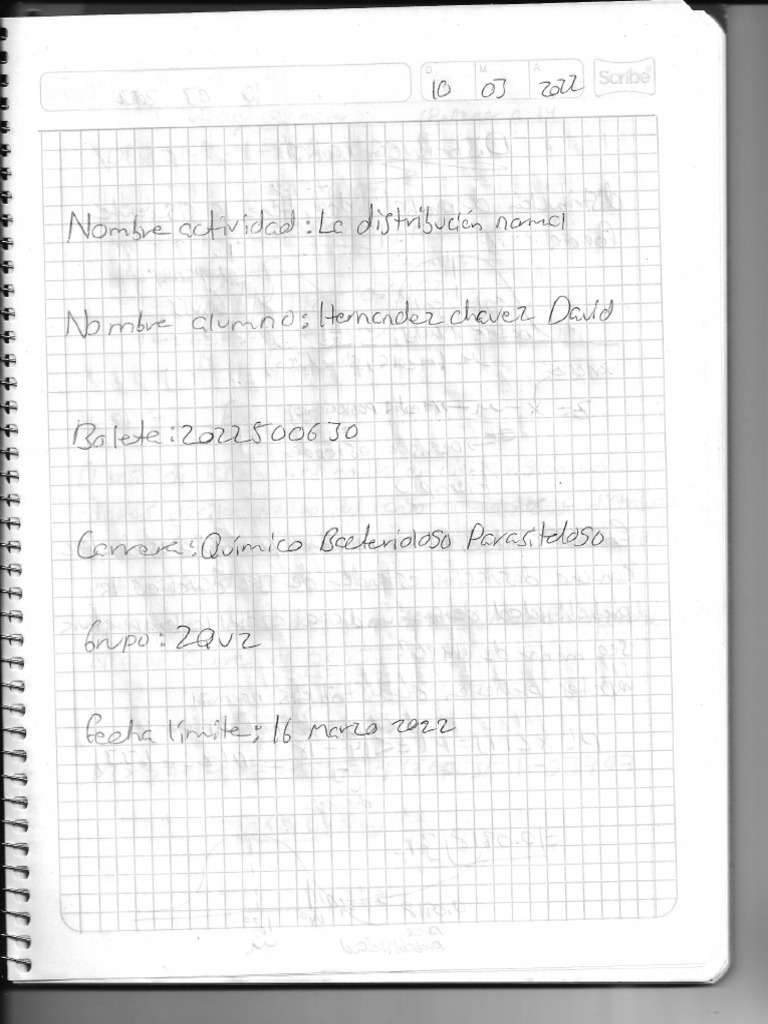 D M A
10 03 2022 Scribe
Nombre actividad: La distribución normal
Nombre alumno: Hernandez chavez David
Boleta: 2022500630
Carrera: Químico Bacteriologo Parasitologo
Grupo: 2QV2
Fecha límite: 16 marzo 2022